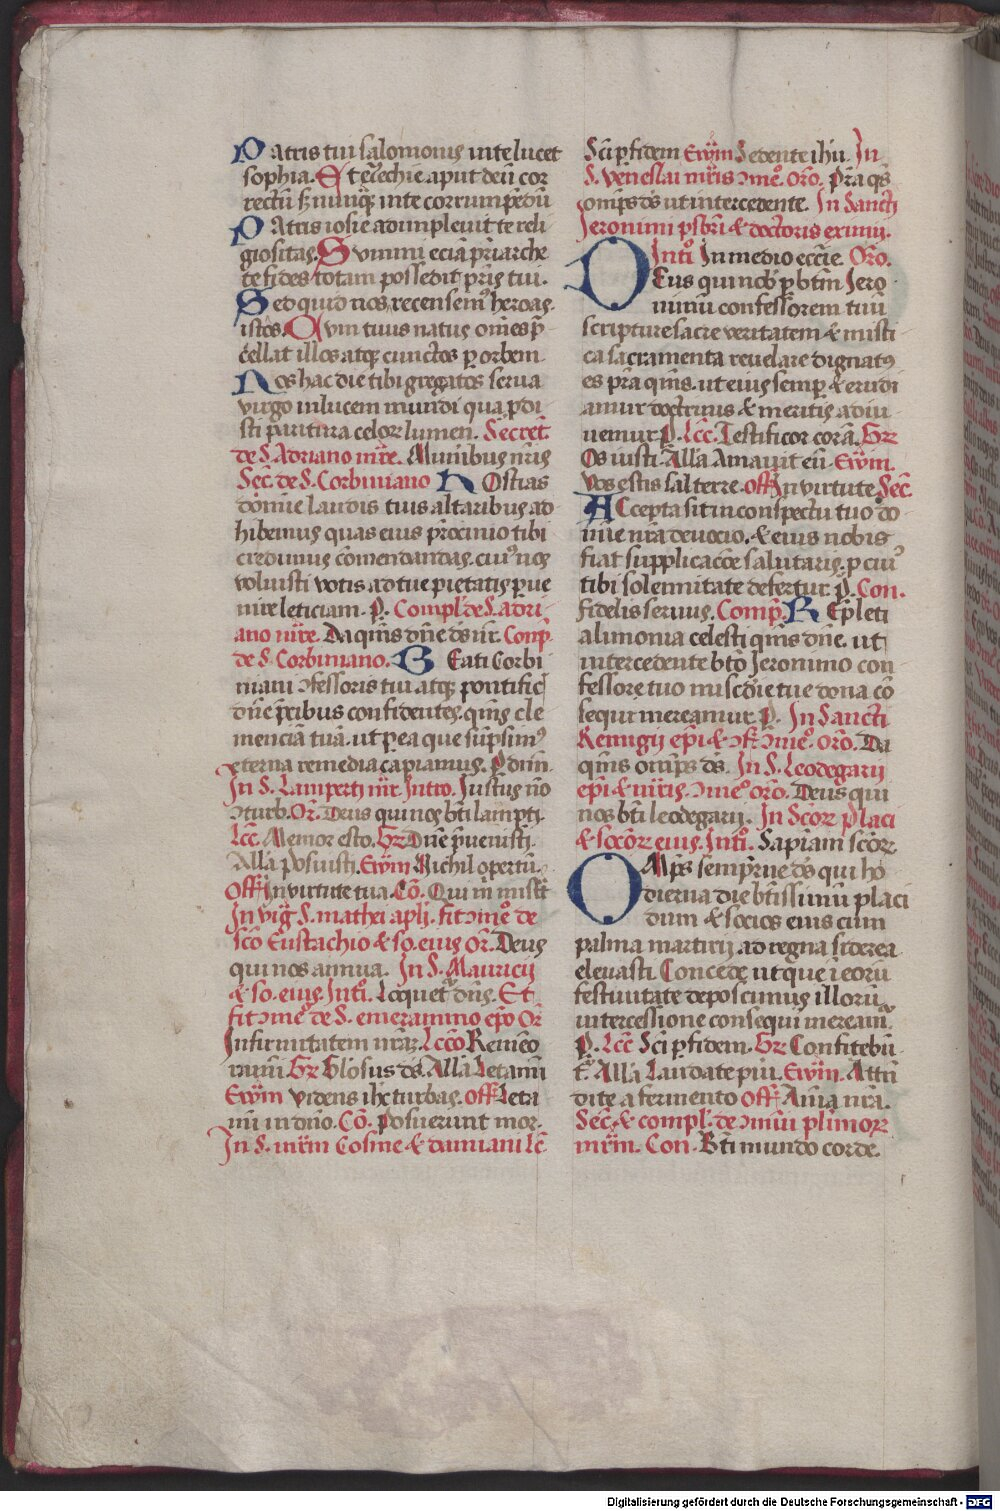 Patris tui salomonis in te lucet
sophia. Et ezechie aput deū cor
rectū s; nūq̄ in te corrumpēdū
Patris iosie adimpleuit te reli
giositas. Summi eciā p̄riarche
te fides totam possedit pr̄is tui.
Sed quid nos recensemꝰ heroas
istos. Cum tuus natus om̄es p̄
cellat illos atq; cunctos per orbem
Nos hac die tibi gregatos serua
virgo in lucem mundi qua ꝓdi
sti paritura celoꝝ lumen. Secret
de S. Adriano mr̄e. Muneribus nr̄is
Sec̄ de S. Corbiniano Hostias
domine laudis tuis altaribus ad
hibemus quas eius pr̄ocinio tibi
credimus cōmendandas. cuiꝰ nos
voluisti votis ad tue pietatis peruē
nire leticiam. P. Compl̄ de S. adri
ano mr̄e. Da qms dn̄e ds nr̄. Comp̄
de S. Corbiniano. Beati Corbi
niani ɔfessoris tui atq; pontific̄
dn̄e p̄cibus confidentes. qms cle
menciā tuā. ut per ea que sūpsimꝰ
eterna remedia capiamus. P dn̄m.
In S. Lamperti mr̄ Intro. Justus nō
ɔturb. Or. Deus qui nos bt̄i lamp̄ti.
Lcc̄ Memor esto. Gr Dn̄e p̄uenisti.
Allā Posuisti. Ewm̄ Nichil opertū.
Off In virtute tua. Cō. Qui m̄ mistt
In vig S. mathei apli. fit ɔmeō de
sc̄o Eustachio & so. eius Or̄. Deus
qui nos annua. In S. Mauricii
& so. eius. Intō. Loquet dn̄s. Et
fit ɔmeō de S. emerammo ep̄o Or
Infirmitatem nr̄aꝫ. Lcc̄o Remeō
ramī Gr Gl̄osus ds. Allā Letamī
Ewm̄ Videns ihc̄ turbas. Off Leta
mī in dn̄o. Cō. Posuerunt mor.
In S. mr̄m Cosme & damiani Lc̄
Sc̄i ꝑ fidem Ewm̄ Sedente ihū. In
S. Veneslai mr̄is ɔmeō. Orō. P̄ra qs
om̄ps ds ut intercedente. In Sancti
Jeronimi psbr̄i & doctoris eximii.
Intō In medio eccīe. Orō.
Deus qui nob̄ ꝑ btm̄ Jero
nimū confessorem tuū
scripture sacre veritatem & misti
ca sacramenta reuelare dignatꝰ
es p̄ra qms. ut eius semꝑ & erudi
amur doctrinis & meritis adiu
uemur. P. Lcc̄. Testificor corā. Gr
Os iusti. Allā Amauit eū. Ewm̄.
Vos estis sal terre. Off In virtute Sec̄
Accepta sit in conspectu tuo do
mīe nr̄a deuocio. & eius nobis
fiat supplicacōe salutaris. ꝓ cuiꝰ
tibi solennitate defertur. P. Con.
fidelis seruus. Comp̄. Repleti
alimonia celesti qms dn̄e. ut
intercedente btō Jeronimo con
fessore tuo miscd̄ie tue dona cō
sequi mereamur. P. In Sancti
Remigii ep̄i & ɔf ɔmeō. Orō. Da
qms om̄ps ds. In S. Leodegarii
ep̄i & m̄ris ɔmeō orō. Deus qui
nos bt̄i leodegarii. In Scōꝝ placi
& socioꝝ eius. Intō. Sapiam scōꝝ
Om̄ps sempr̄ne ds qui ho
dierna die bt̄issimū placi
dum & socios eius cum
palma martirij ad regna siderea
eleuasti. Concede ut que ī eorū
festiuitate deposcimus illorū
intercessione consequi mereamꝰ.
P. Lcc̄ Sc̄i ꝑ fidem. Gr Confitebū
t̄. Allā Laudate pūi. Ewm̄. Attn̄
dite a fermento Off Anīa nr̄a.
Sec̄ & compl̄. de ɔmūi plīmoꝝ
mr̄m. Con. Bt̄i mundo corde.
Digitalisierung gefördert durch die Deutsche Forschungsgemeinschaft - DFG